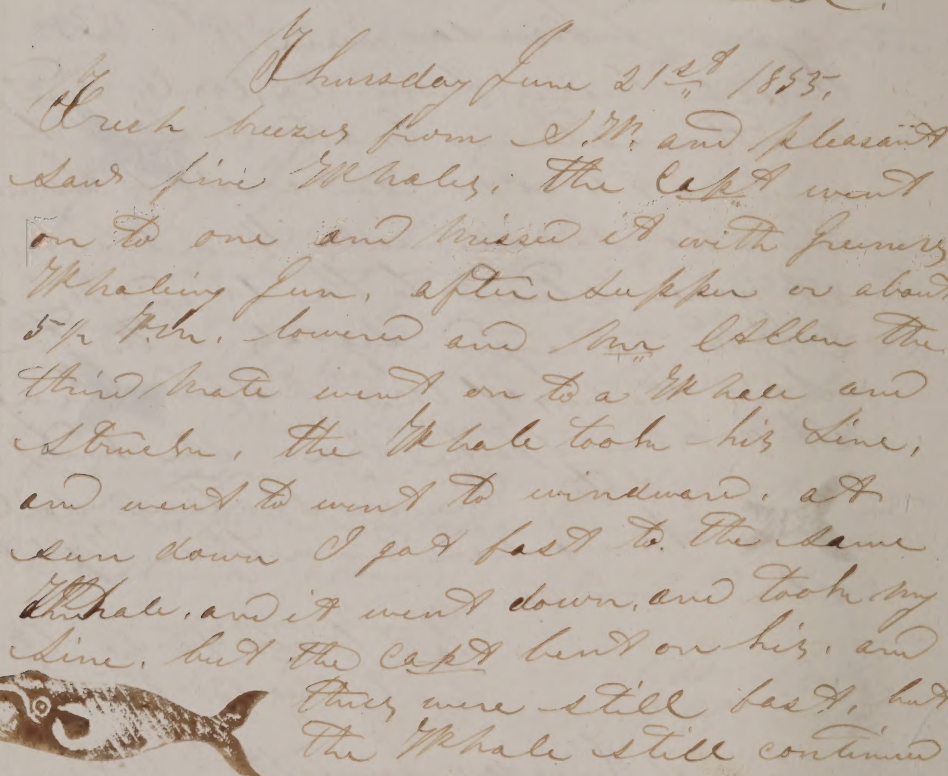 Thursday June 21st 1855.
Fresh breezes from S.W. and pleasant
saw five Whales. the Capt went
on to one and missed it with Greeners
Whaling Gun. after supper or about
5 1/2 P.M. lowered and Mr Allen the
third Mate went on to a Whale and
struck, the Whale took his Line,
and went to went to windward. at
sun down I got fast to the same
Whale. and it went down, and took my
Line. but the Capt bent on his. and
they were still fast, but
the Whale still continued